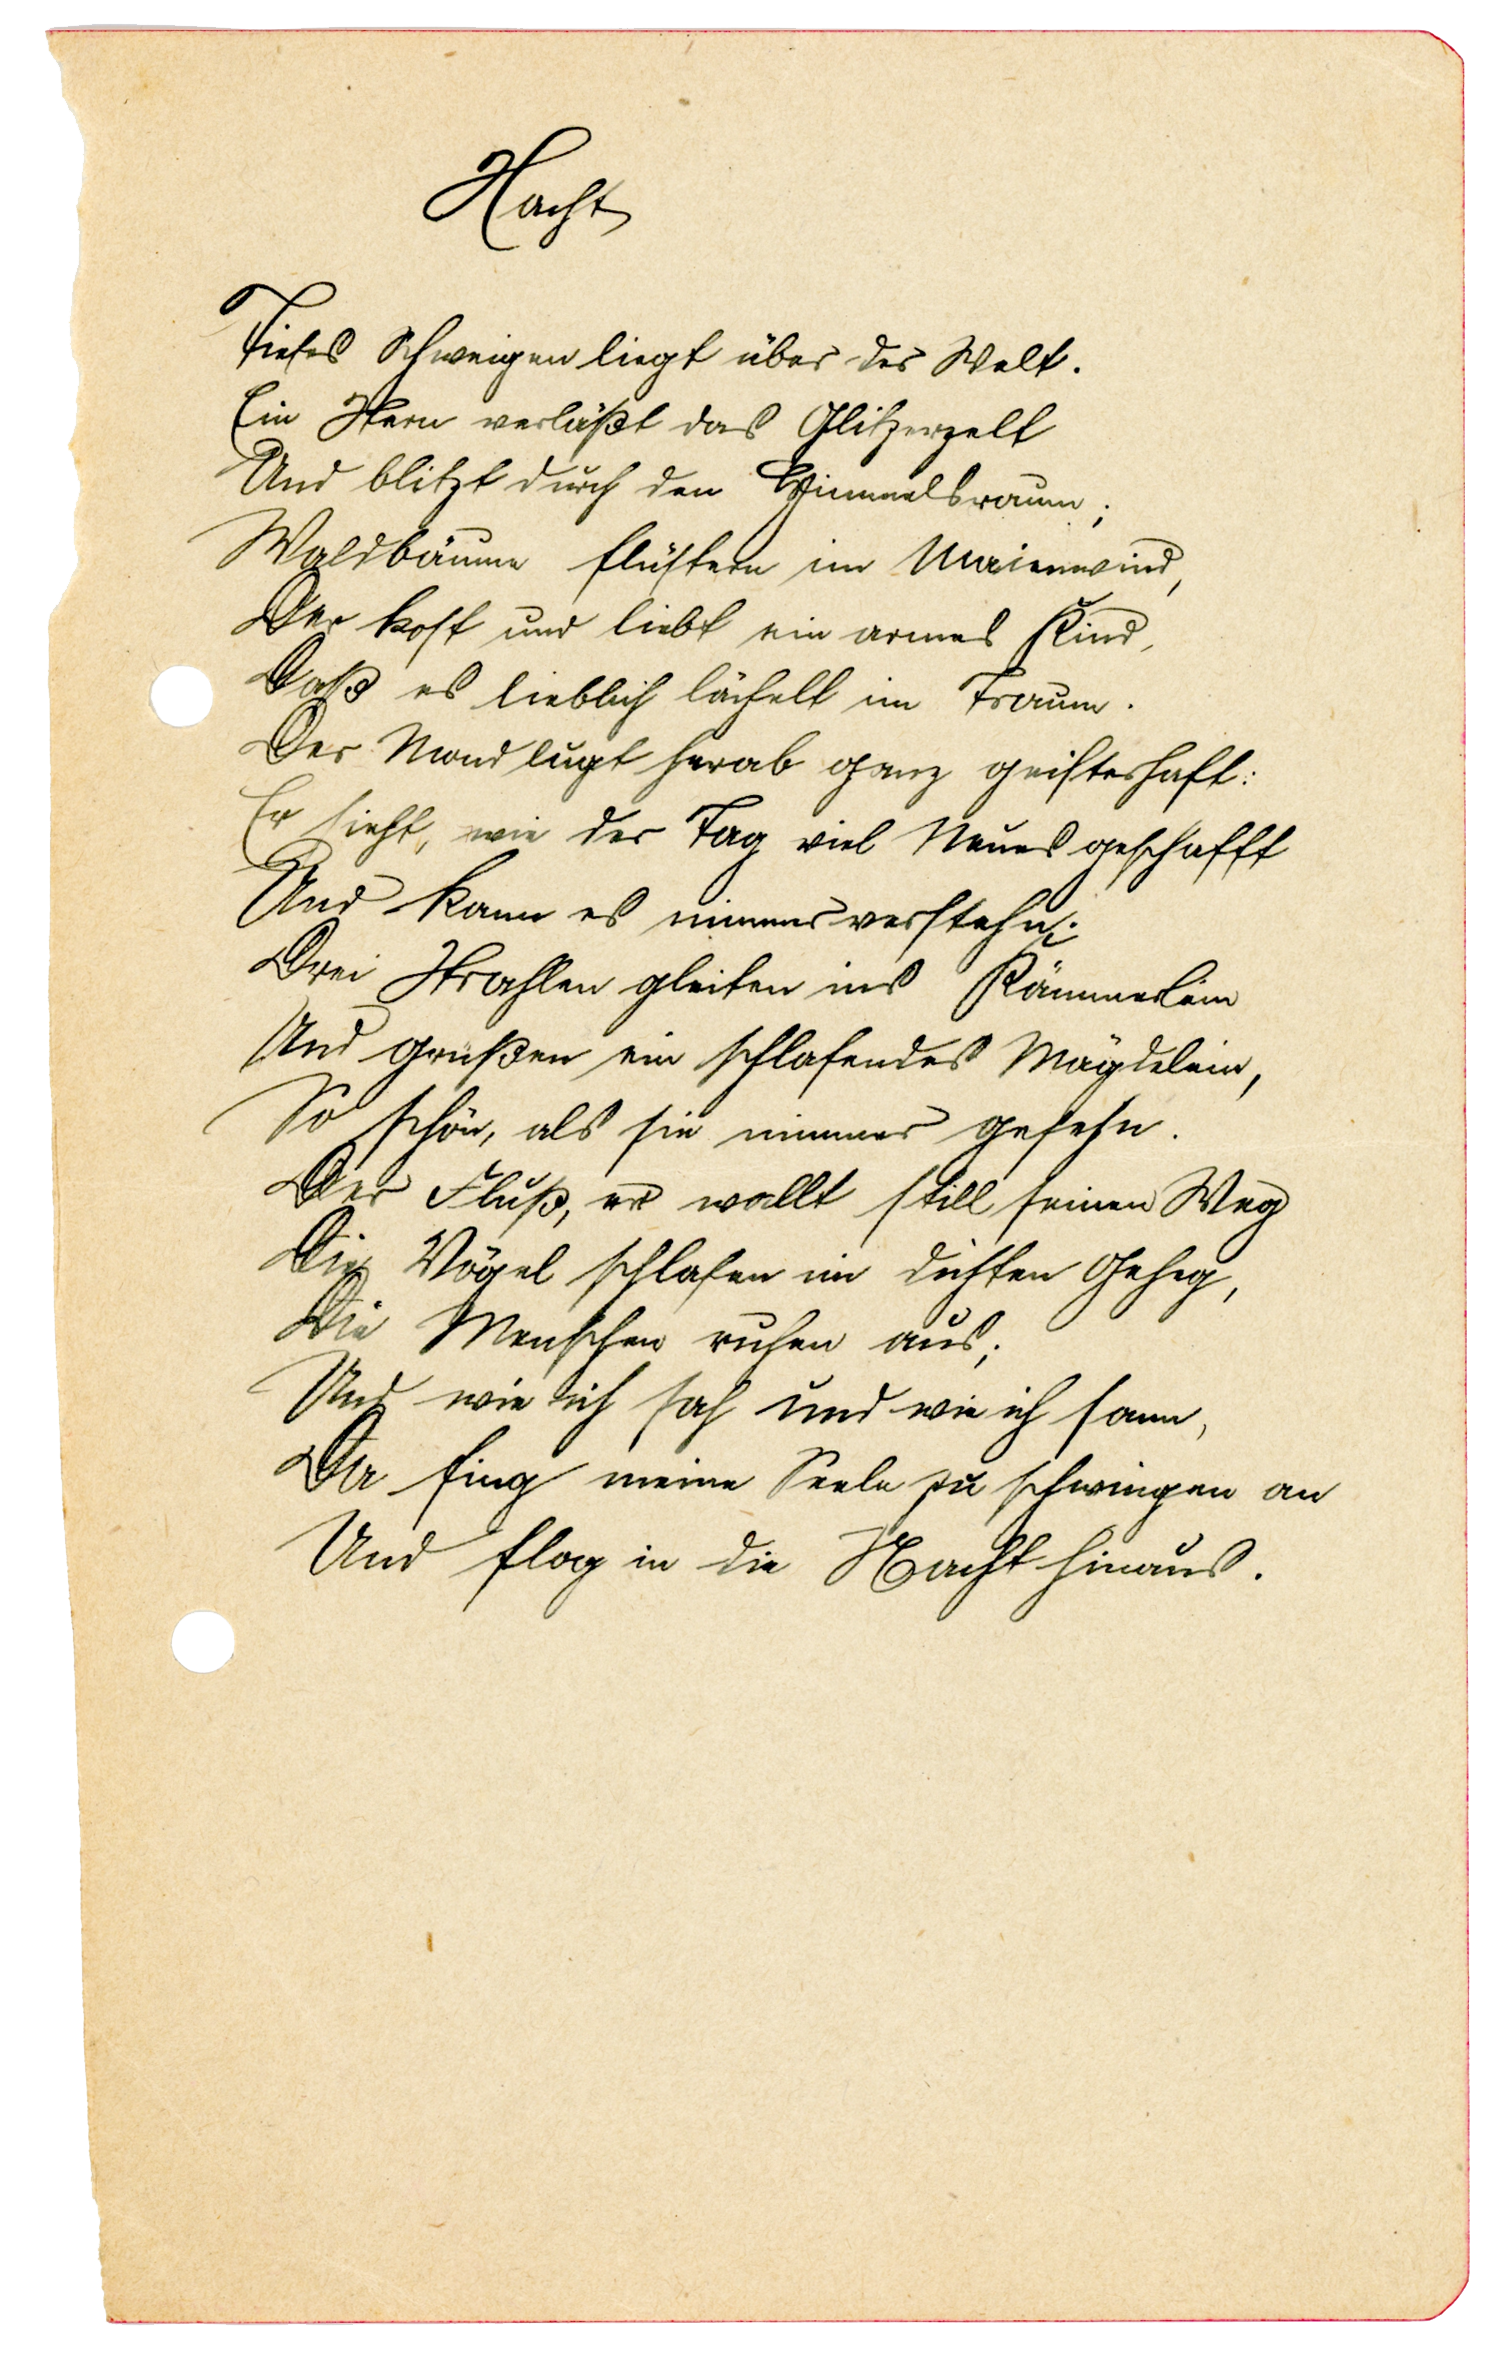 Nacht
Tiefes Schweigen liegt über der Welt.
Ein Stern verläßt das Glitzerzelt
Und blitzt durch den Himmelsraum;
Waldbäume flüstern im Maienwind,
Der kost und liebt ein armes Kind,
Daß es lieblich lächelt im Traum.
Der Mond lugt herab ganz geisterhaft:
Er sieht, wie der Tag viel Neues geschafft
Und kann es nimmer verstehn;
Drei Strahlen gleiten ins Kämmerlein
Und grüßen ein schlafendes Mägdelein,
So schön, als sie nimmer gesehn.
Der Fluß, er wallt still seinen Weg
Die Vögel schlafen im dichten Geheg,
Die Menschen ruhen aus;
Und wie ich sah und wie ich sann,
Da fing meine Seele zu schwingen an
Und flog in die Nacht hinaus.